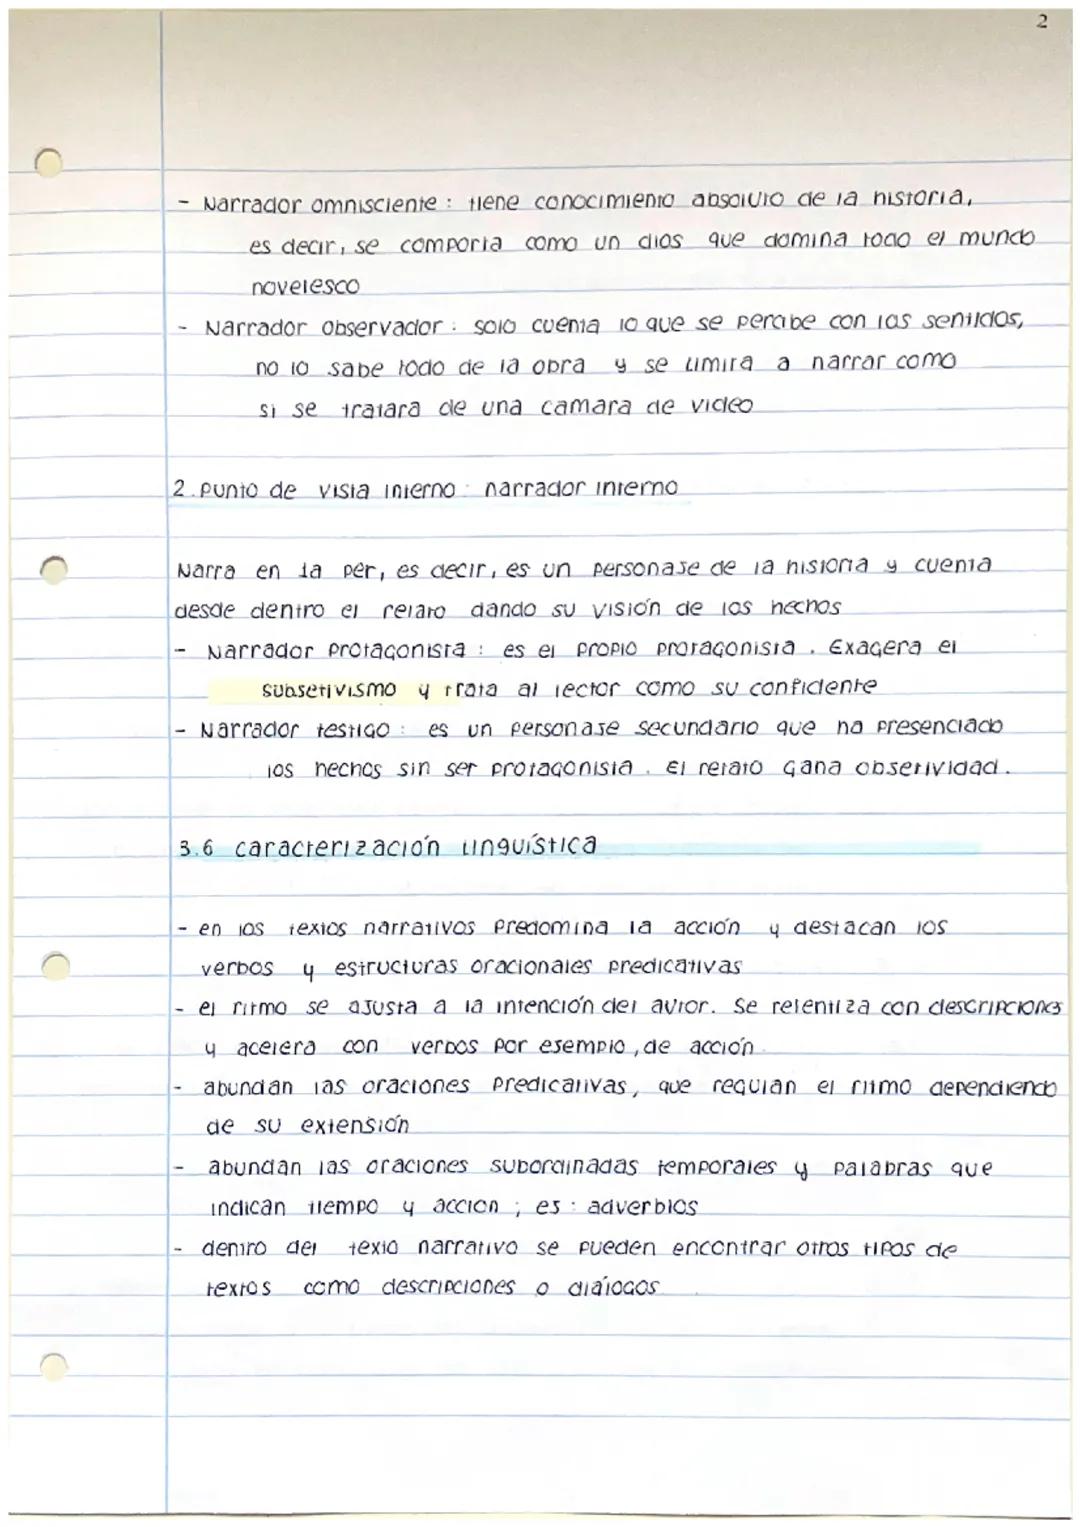 2
- Narrador omnisciente : tiene conocimiento absoluto de la historia,
es decir, se comporta como un dios que domina todo el mundo
novelesco
- Narrador observador : solo cuenta lo que se percibe con los sentidos,
no lo sabe todo de la obra y se limita a narrar como
si se tratara de una camara de video
2. punto de vista interno : narrador interno
Narra en 1a per, es decir, es un personaje de la historia y cuenta
desde dentro el relato dando su visión de los hechos
- Narrador protagonista : es el propio protagonista. Exagera el
subjetivismo y trata al lector como su confidente
- Narrador testigo : es un personaje secundario que ha presenciado
los hechos sin ser protagonista. El relato gana objetividad.
3.6 caracterización linguística
- en los textos narrativos predomina la acción y destacan los
verbos y estructuras oracionales predicativas
- el ritmo se ajusta a la intención del autor. Se relentiza con descripciones
y acelera con verbos por ejemplo, de acción
- abundan las oraciones predicativas, que regulan el ritmo dependiendo
de su extensión
- abundan las oraciones subordinadas temporales y palabras que
indican tiempo y accion ; ej : adverbios
- dentro del texto narrativo se pueden encontrar otros tipos de
textos como descripciones o diálogos